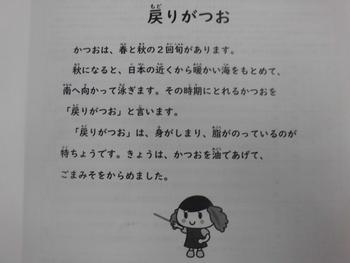 戻りがつお
かつおは、春と秋の２回旬があります。
秋になると、日本の近くから暖かい海をもとめて、
南へ向かって泳ぎます。その時期にとれるかつおを
「戻りがつお」と言います。
「戻りがつお」は、身がしまり、脂がのっているのが
特ちょうです。きょうは、かつおを油であげて、
ごまみそをからめました。